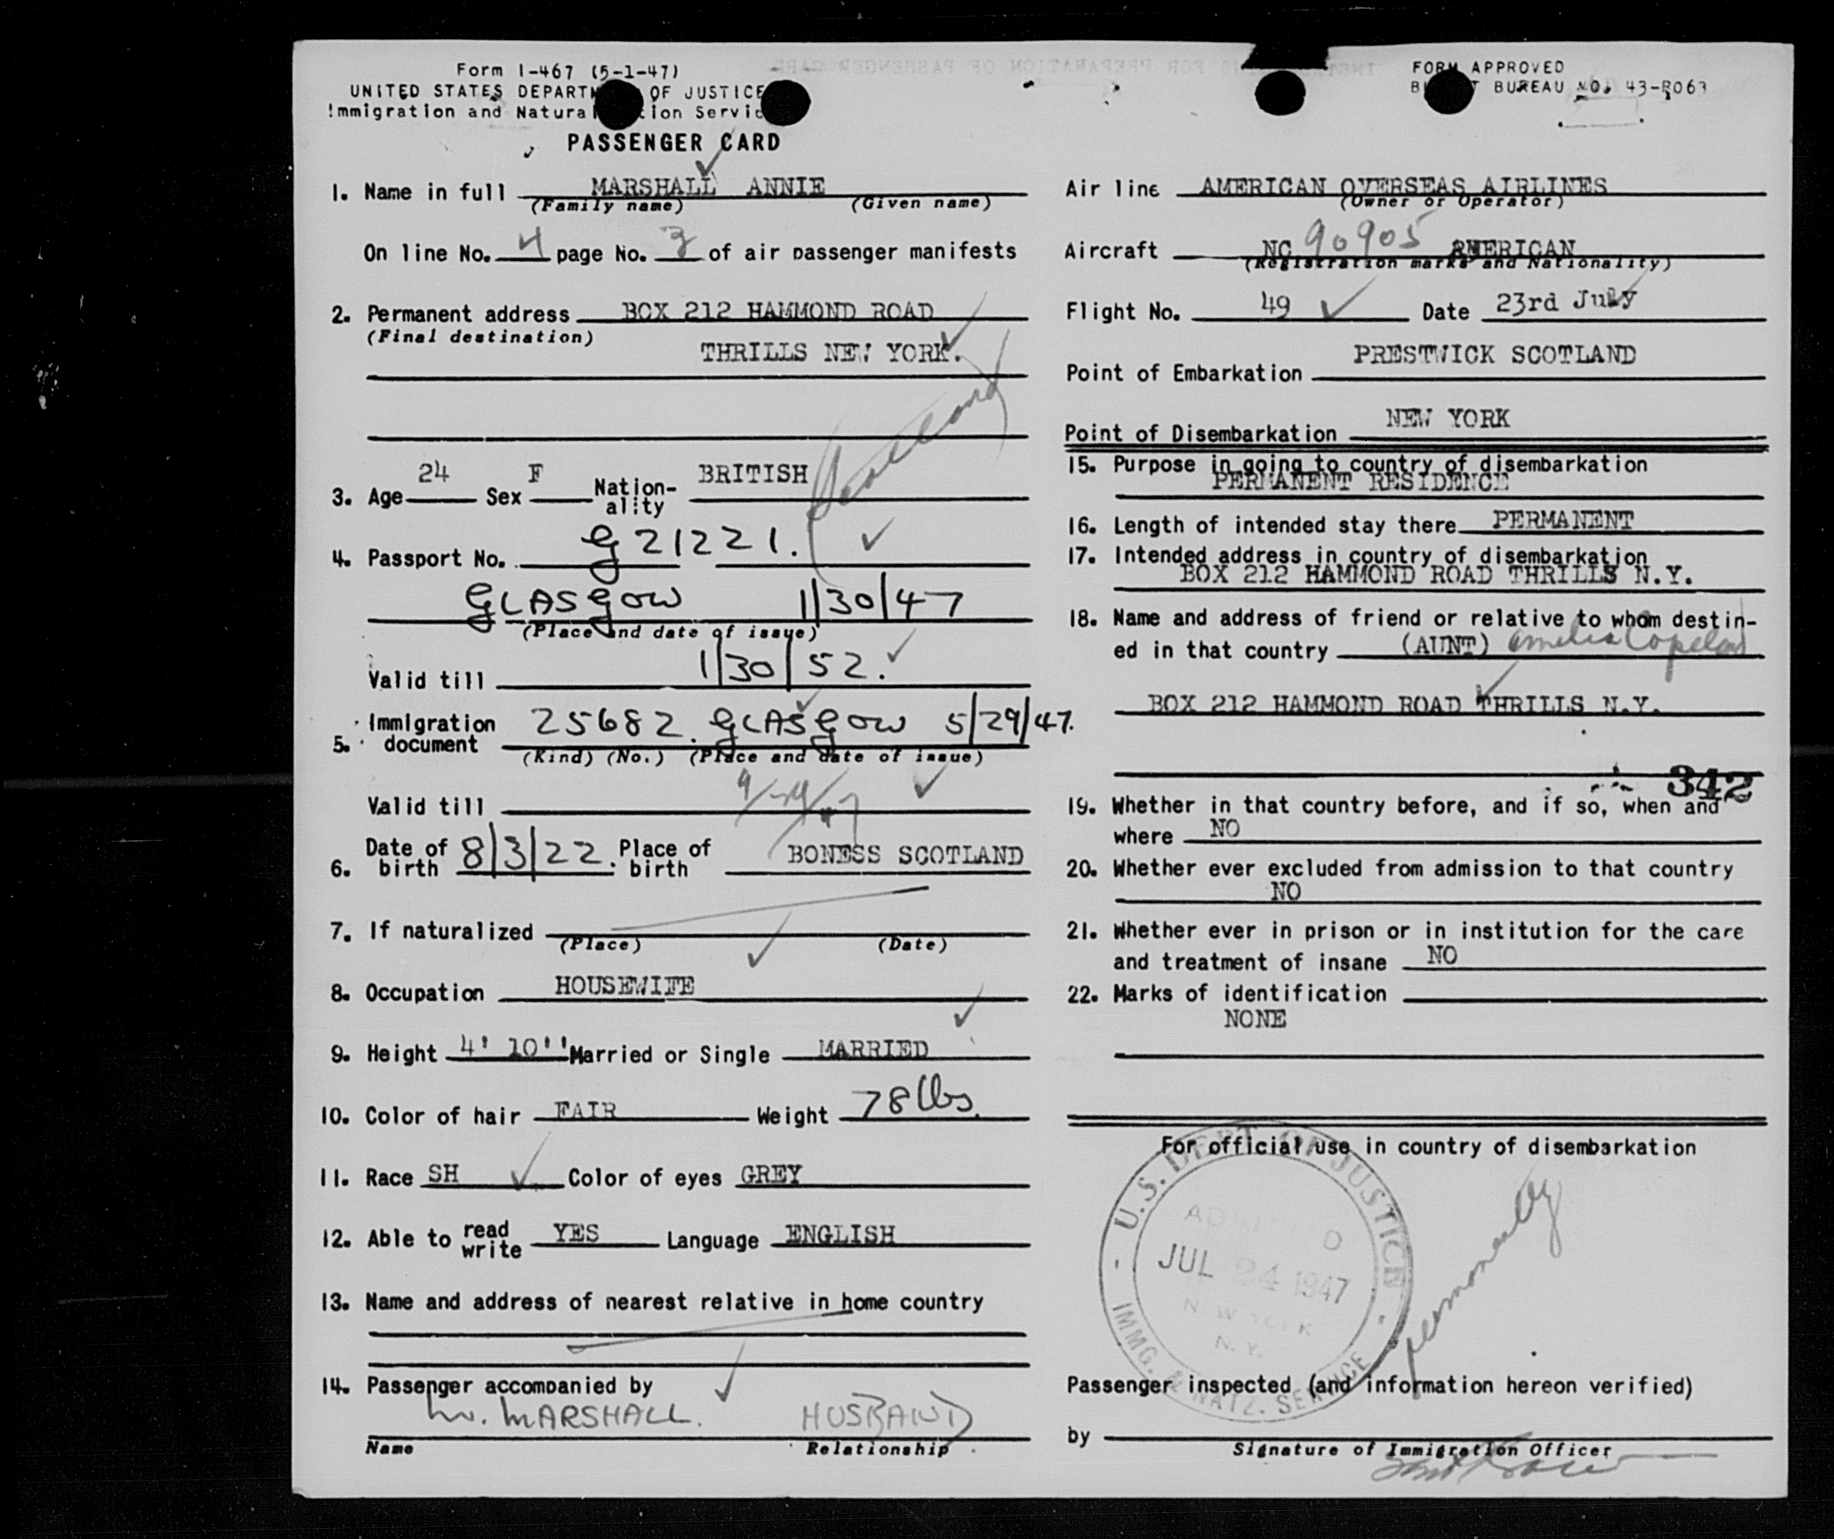 Form I-467 (5-1-47)
UNITED STATES DEPARTM OF JUSTICE
Immigration and Natura tion Servic
PASSENGER CARD
1. Name in full MARSHALL ANNIE
(Family name) (Given name)
On line No. 4 page No. 3 of air passenger manifests
2. Permanent address BOX 212 HAMMOND ROAD
(Final destination)
THRILLS NEW YORK.
Scotland
3. Age 24 Sex F Nation-ality BRITISH
4. Passport No. G21221.
GLASGOW 1/30/47
(Place and date of issue)
Valid till 1/30/52.
5. Immigration document 25682. GLASGOW 5/29/47.
(Kind) (No.) (Place and date of issue)
Valid till 9/29/47
6. Date of birth 8/3/22. Place of birth BONESS SCOTLAND
7. If naturalized
(Place) (Date)
8. Occupation HOUSEWIFE
9. Height 4' 10'' Married or Single MARRIED
10. Color of hair FAIR Weight 78 lbs.
11. Race SH Color of eyes GREY
12. Able to read write YES Language ENGLISH
13. Name and address of nearest relative in home country
14. Passenger accompanied by
W. MARSHALL. HUSBAND
Name Relationship
FORM APPROVED
B T BUREAU NO. 43-R063
Air line AMERICAN OVERSEAS AIRLINES
(Owner or Operator)
Aircraft NC 90905 AMERICAN
(Registration marks and Nationality)
Flight No. 49 Date 23rd July
Point of Embarkation PRESTWICK SCOTLAND
Point of Disembarkation NEW YORK
15. Purpose in going to country of disembarkation
PERMANENT RESIDENCE
16. Length of intended stay there PERMANENT
17. Intended address in country of disembarkation
BOX 212 HAMMOND ROAD THRILLS N.Y.
18. Name and address of friend or relative to whom destin-
ed in that country (AUNT) Amelia Copeland
BOX 212 HAMMOND ROAD THRILLS N.Y.
342
19. Whether in that country before, and if so, when and
where NO
20. Whether ever excluded from admission to that country
NO
21. Whether ever in prison or in institution for the care
and treatment of insane NO
22. Marks of identification
NONE
For official use in country of disembarkation
U.S. DEPT. OF JUSTICE
ADMITTED
JUL 24 1947
NEW YORK
N.Y.
IMMG. & NATZ. SERVICE
permanently
Passenger inspected (and information hereon verified)
by
Signature of Immigration Officer